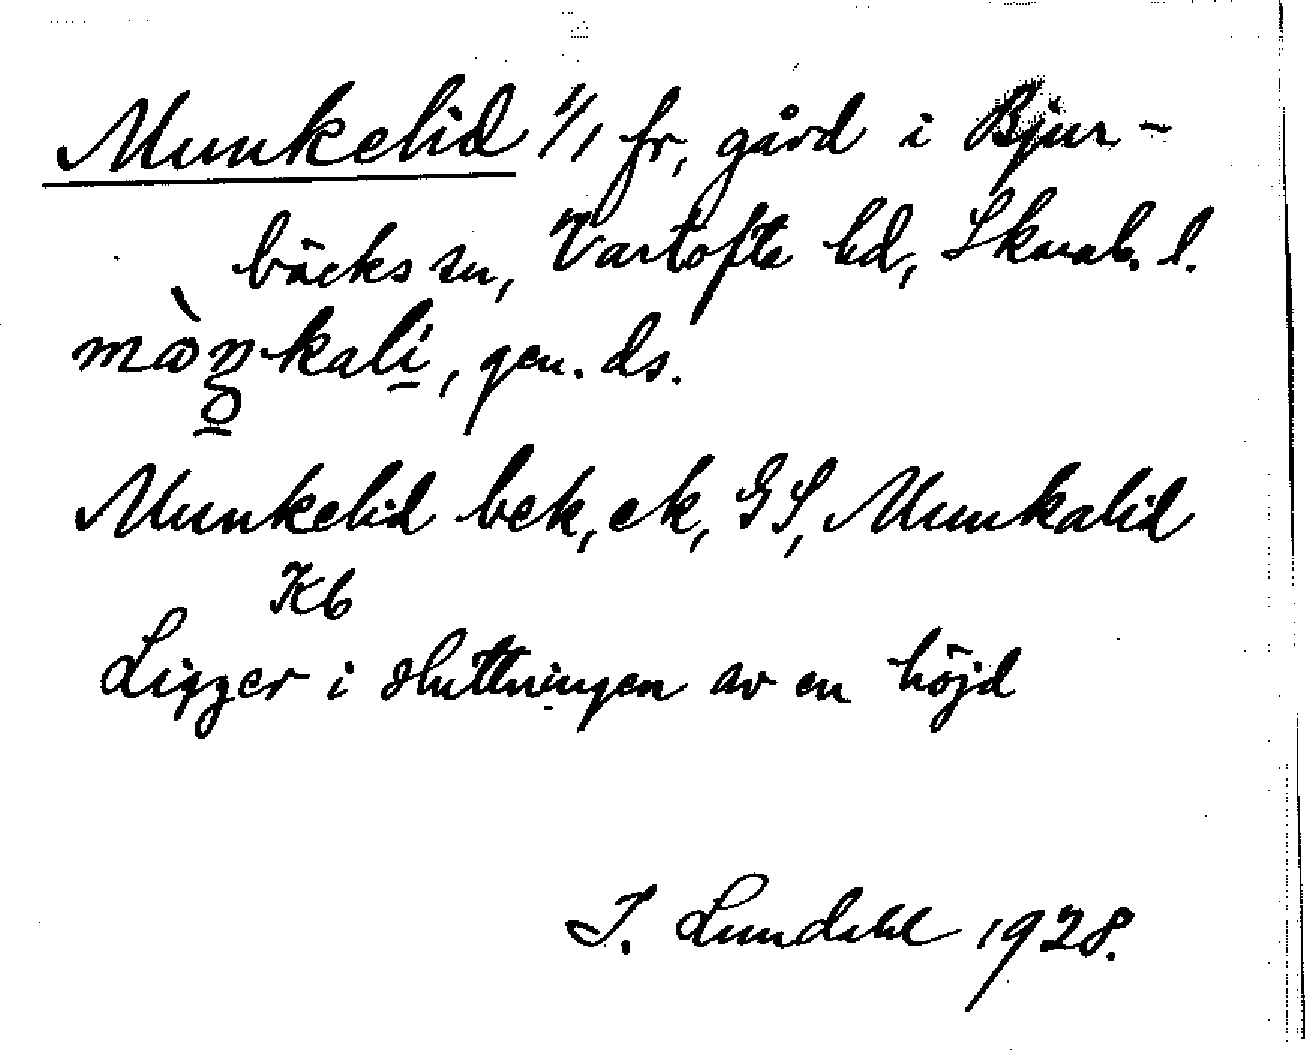 Munkelid 1/1 fr, gård i Bjur-
bäcks sn, Vartofte hd, Skarab. l.
màŋkali, gen. ds.
Munkelid bek, ek, GS, Munkalid
Kb
Ligger i sluttningen av en höjd
I. Lundahl 1928.